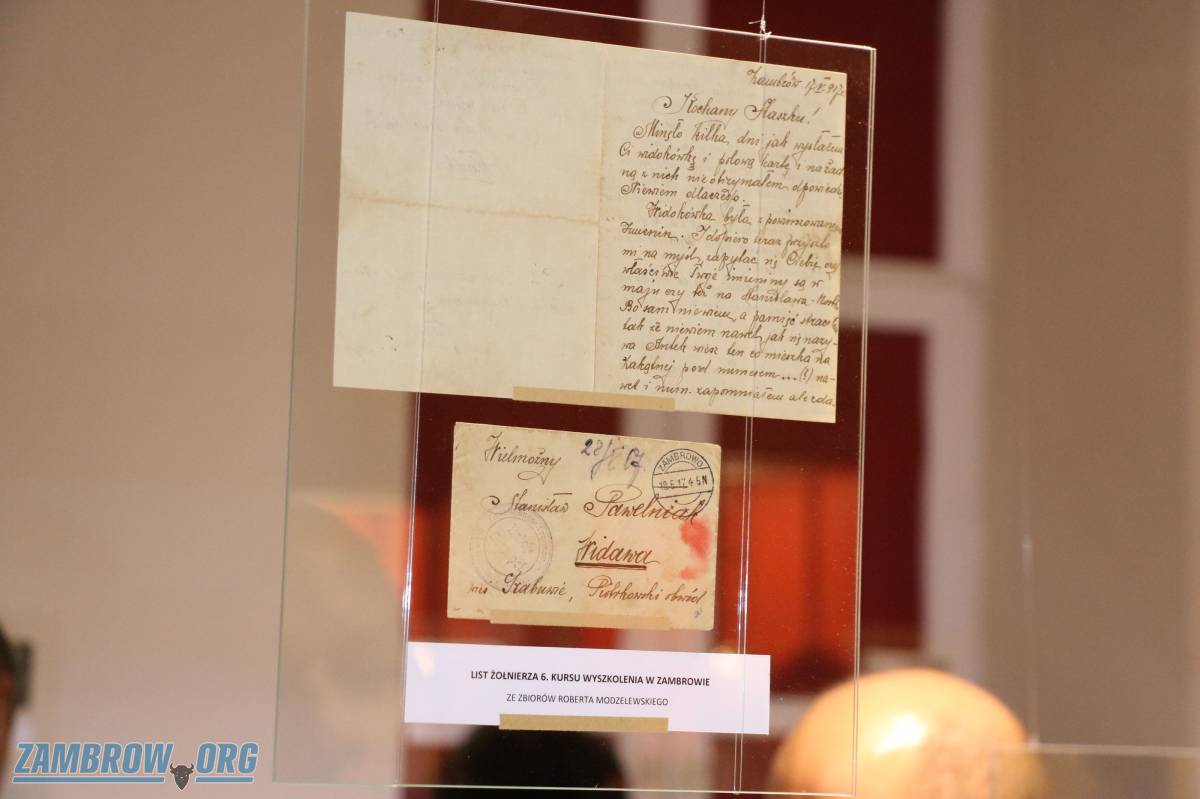 Zambrów 17.V.917r.
Kochany Staszku!
Minęło kilka dni jak wysłałem
Ci widokówkę i polową kartę i na żad
ną z nich nie otrzymałem odpowiedz.
Niewiem dlaczego.
Widokówka była z powinszowaniem
Imienin. I dopiero teraz przyszło
mi na myśl zapytac się Ciebie czy
właściwie Twoje imieniny są w
maju czy też na Stanisława
Bo sam niewiem, a pamięć
tak że niewiem nawet jak się nazy-
wa Antek wiesz ten co mieszka na
Zakątnej pod numerem ... (?) na-
wet i num. zapomniałem ale zda.
Wielmożny
28/V 17.
ZAMBROWO
18.5.17.4-5N
Stanisław Pawelniak
Widawa
wieś Grabowie, Piotrkowski obwód
LIST ŻOŁNIERZA 6. KURSU WYSZKOLENIA W ZAMBROWIE
ZE ZBIORÓW ROBERTA MODZELEWSKIEGO
ZAMBROW.ORG